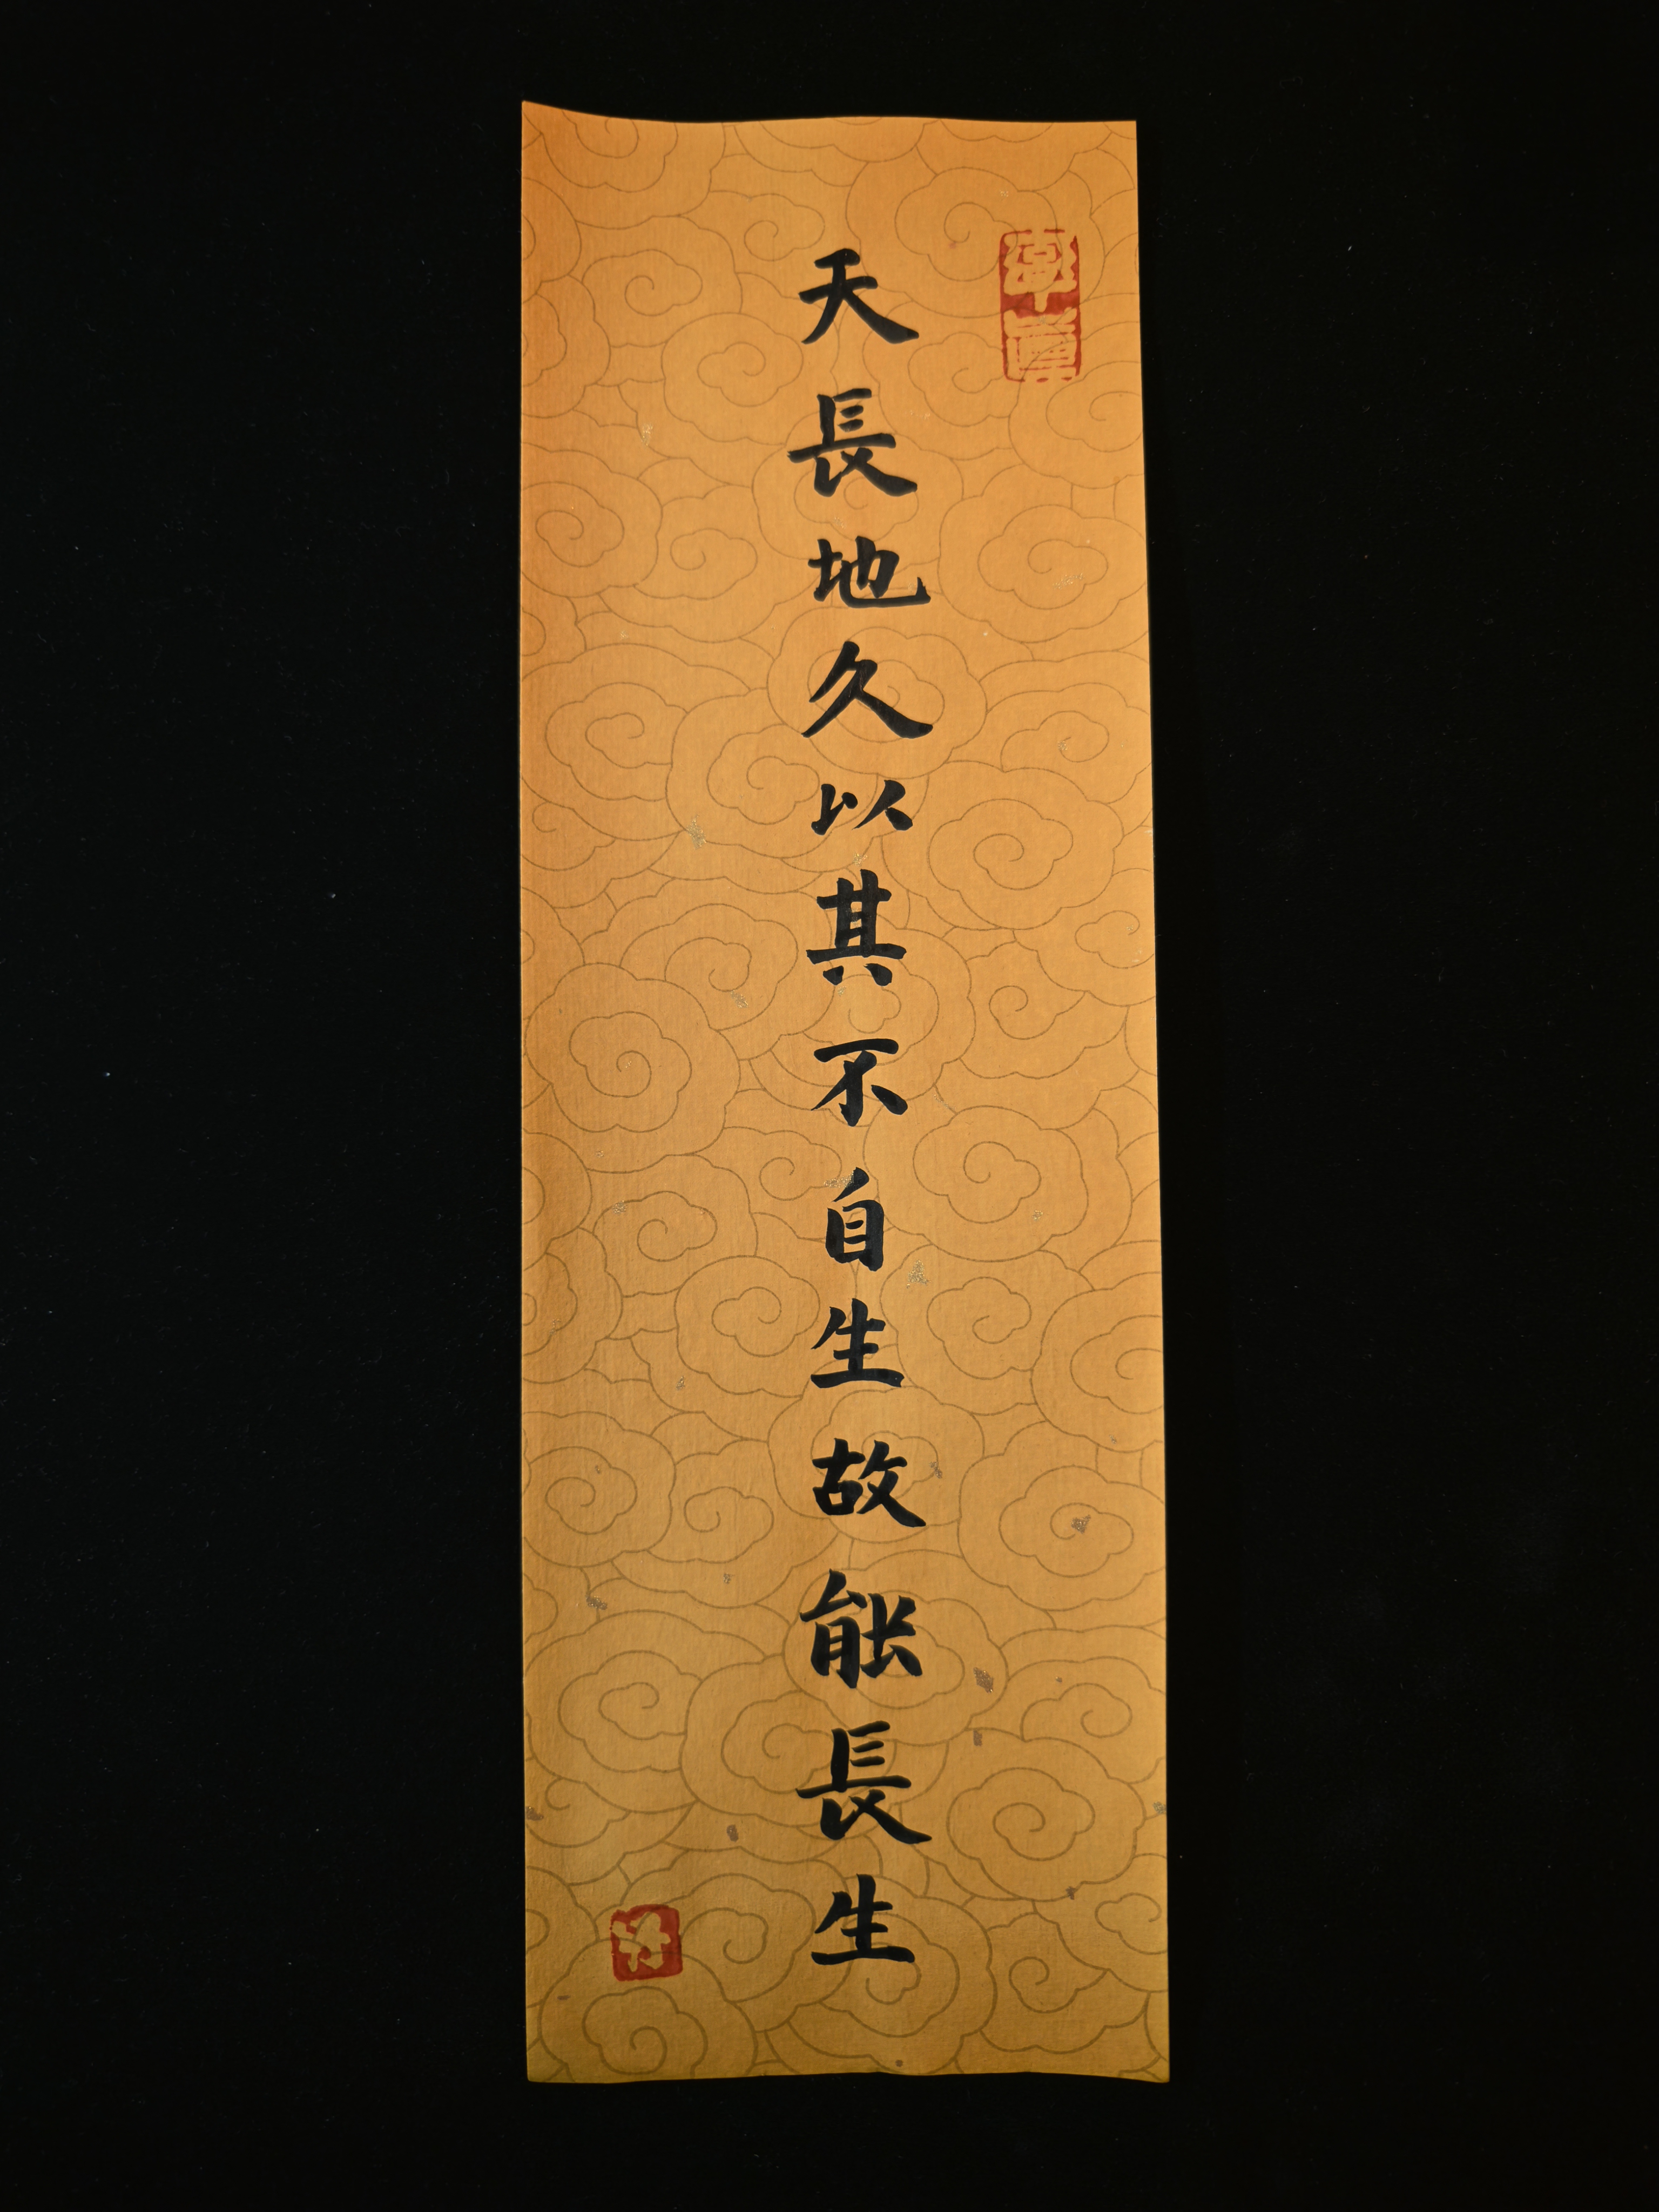 天長地久以其不自生故能長生